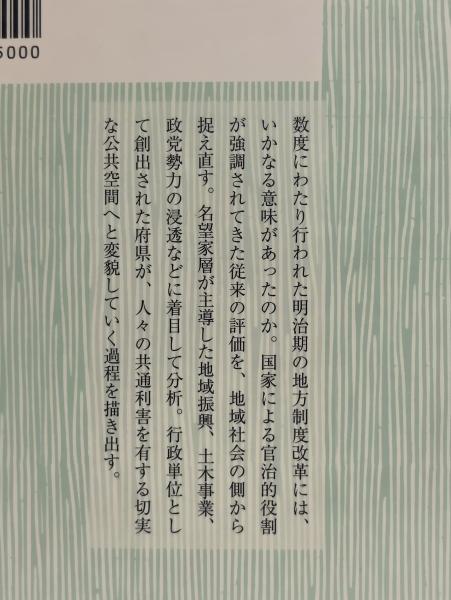 5000
数度にわたり行われた明治期の地方制度改革には、
いかなる意味があったのか。国家による官治的役割
が強調されてきた従来の評価を、地域社会の側から
捉え直す。名望家層が主導した地域振興、土木事業、
政党勢力の浸透などに着目して分析。行政単位とし
て創出された府県が、人々の共通利害を有する切実
な公共空間へと変貌していく過程を描き出す。